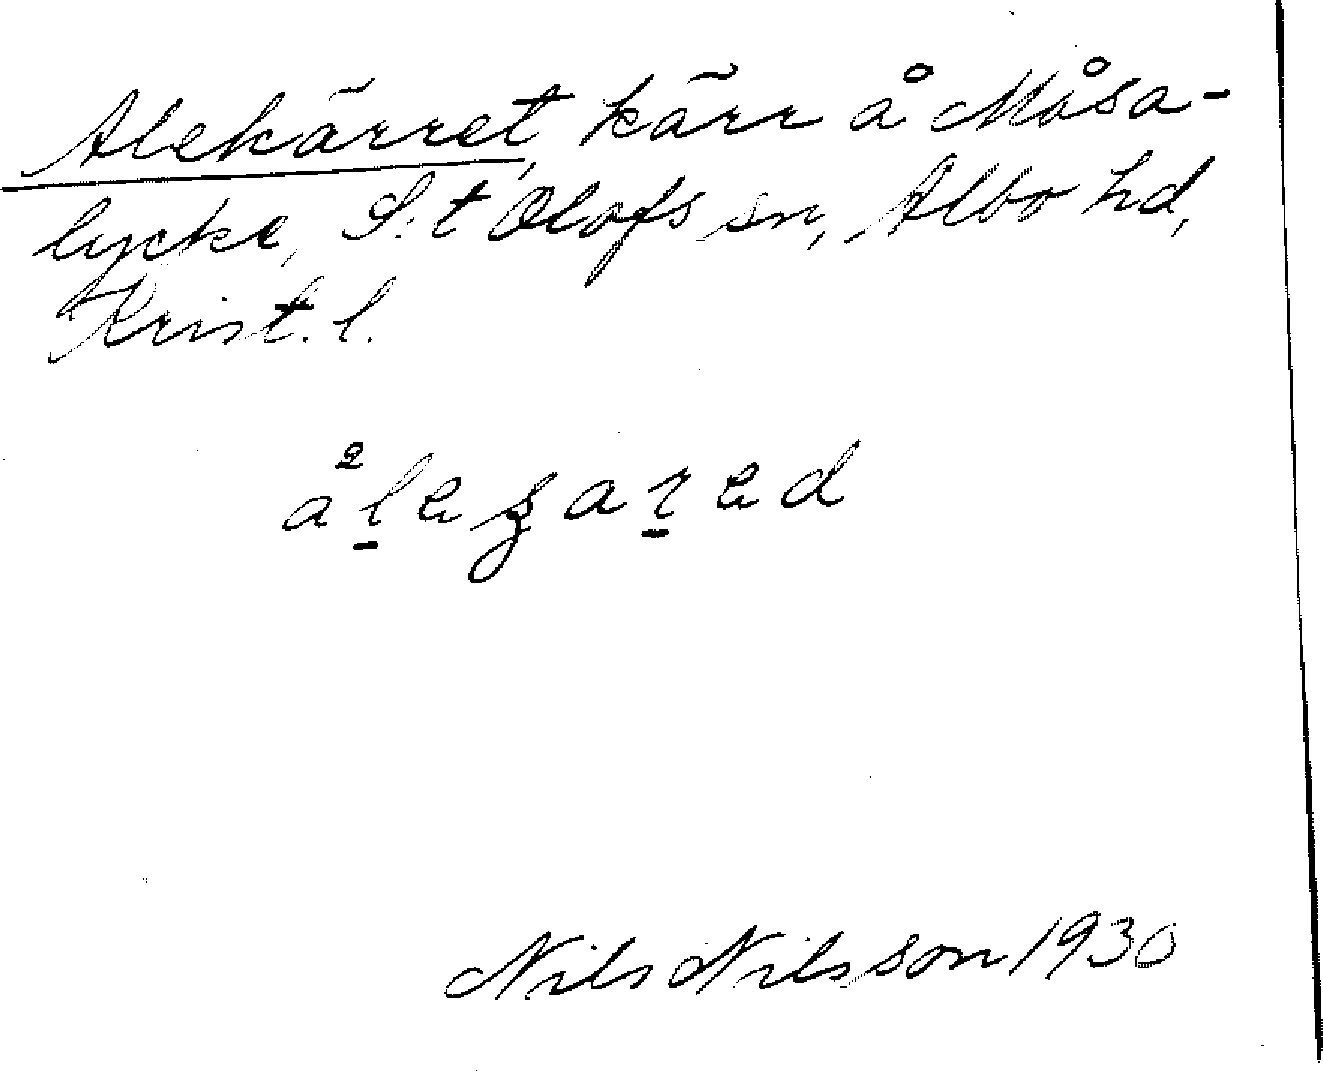 Alekärret, kärr å Måsa-
lycke, S:t Olofs sn, Albo hd,
Krist. l.
Nils Nilsson 1930